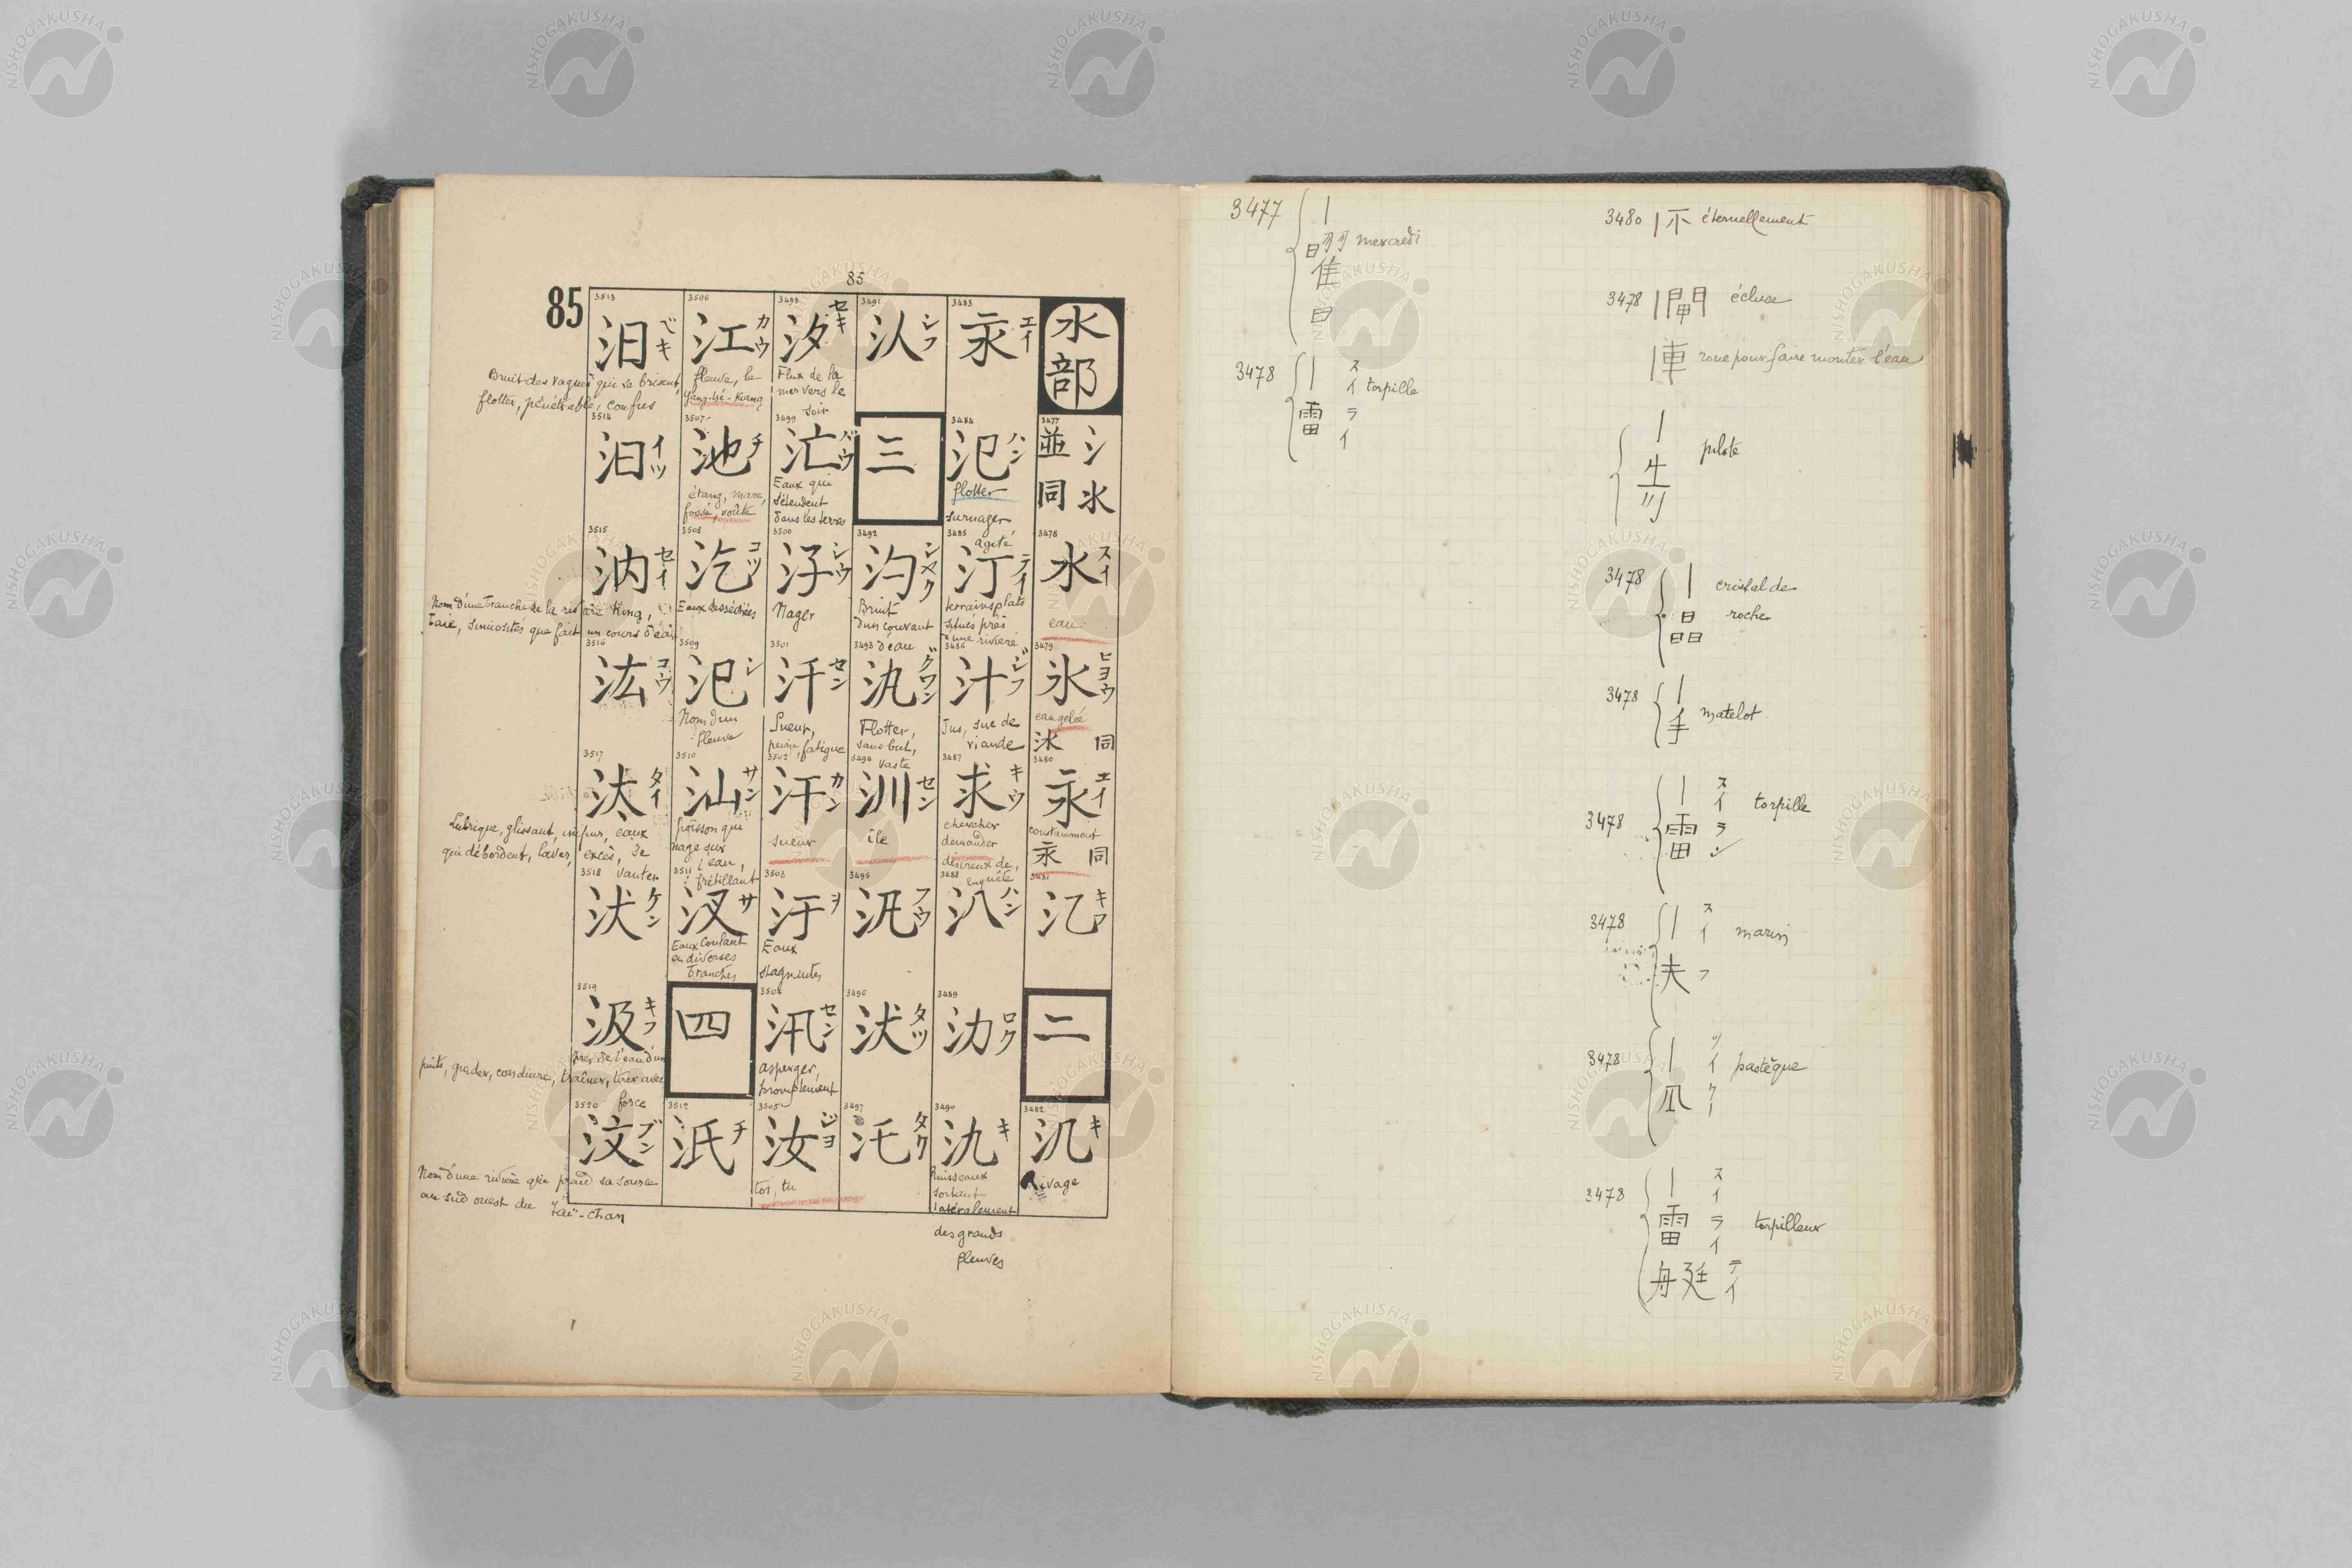 85
85
水部
3477
氵氺
並同
3478
水 スイ
eau
3479
氷 ヒヨウ
eau gelée
冰 同
3480
永 エイ
constamment
同
3481
二
3482
氿 キ
Rivage
3483
エイ
3484
氾 ハン
flotter
surnager
agité
3485
汀 テイ
terrains plats
situés près
d'une rivière
3486
汁 ジフ
Jus, suc de
viande
3487
求 キウ
chercher
demander
désireux de,
enquête
3488
汃 ハン
3489
氻 ロク
3490
氿 キ
Ruisseaux
sortant
latéralement
des grands
fleuves
3491
シフ
三
3492
汋 シヤク
Bruit
d'un courant
d'eau
3493
汍 グワン
Flotter,
sans but,
vaste
3494
汌 セン
île
3495
汎 フウ
3496
タツ
3497
汑 タク
3498
汐 セキ
Flux de la
mer vers le
soir
3499
汒 バウ
Eaux qui
s'étendent
dans les terres
3500
汓 シウ
Nager
3501
汗 セン
Sueur,
peine, fatigue
3502
汗 カン
sueur
3503
汙 ヲ
Eaux
stagnantes
3504
汛 セン
asperger,
promptement
3505
汝 ジヨ
toi, tu
3506
江 カウ
fleuve, le
Yang-tsé-Kiang
3507
池 チ
étang, mare,
fossé, voûte
3508
汔 コツ
Eaux desséchées
3509
汜 シ
Nom d'un
fleuve
3510
汕 サン
poisson qui
nage sur
l'eau,
frétillant
3511
汊 サ
Eaux coulant
en diverses
branches
四
3512
汦 チ
3513
汨 ベキ
Bruit des vagues qui se brisent,
flotter, pénétrable, confus
3514
汩 イツ
3515
汭 セイ
Nom d'une branche de la rivière King,
Taie, sinuosités que fait un cours d'eau
3516
汯 コウ
3517
汰 タイ
Lubrique, glissant, impur, eaux
qui débordent, laver, excès, se
vanter
3518
汱 ケン
3519
汲 キフ
puits, guider, conduire, traîner, tirer avec
force
3520
汶 ブン
Nom d'une rivière qui prend sa source
au sud ouest du Taï-chan
3477
｜曜日 mercredi
3478
｜雷 スイライ torpille
3480 ｜不 éternellement
3478 ｜閘 écluse
｜車 roue pour faire monter l'eau
｜先 pilote
3478 ｜晶 cristal de
roche
3478 ｜手 matelot
3478 ｜雷 スイラ torpille
3478 ｜夫 スイフ marin
3478 ｜瓜 pastèque
3478 ｜雷艇 スイライテイ torpilleur